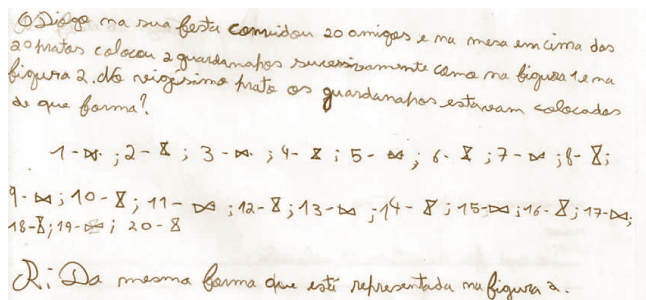 O Diogo na sua festa convidou 20 amigos e na mesa em cima dos
20 pratos colocou 2 guardanapos sucessivamente como na figura 1 e na
figura 2. do vigíssimo prato os guardanapos estavam colocados
de que forma?
1-⋈ ; 2-⧖ ; 3-⋈ ; 4-⧖ ; 5-⋈ ; 6-⧖ ; 7-⋈ ; 8-⧖;
9-⋈ ; 10-⧖ ; 11-⋈ ; 12-⧖ ; 13-⋈ ; 14-⧖ ; 15-⋈ ; 16-⧖ ; 17-⋈;
18-⧖ ; 19-⋈ ; 20-⧖
R: Da mesma forma que está representada na figura 2.